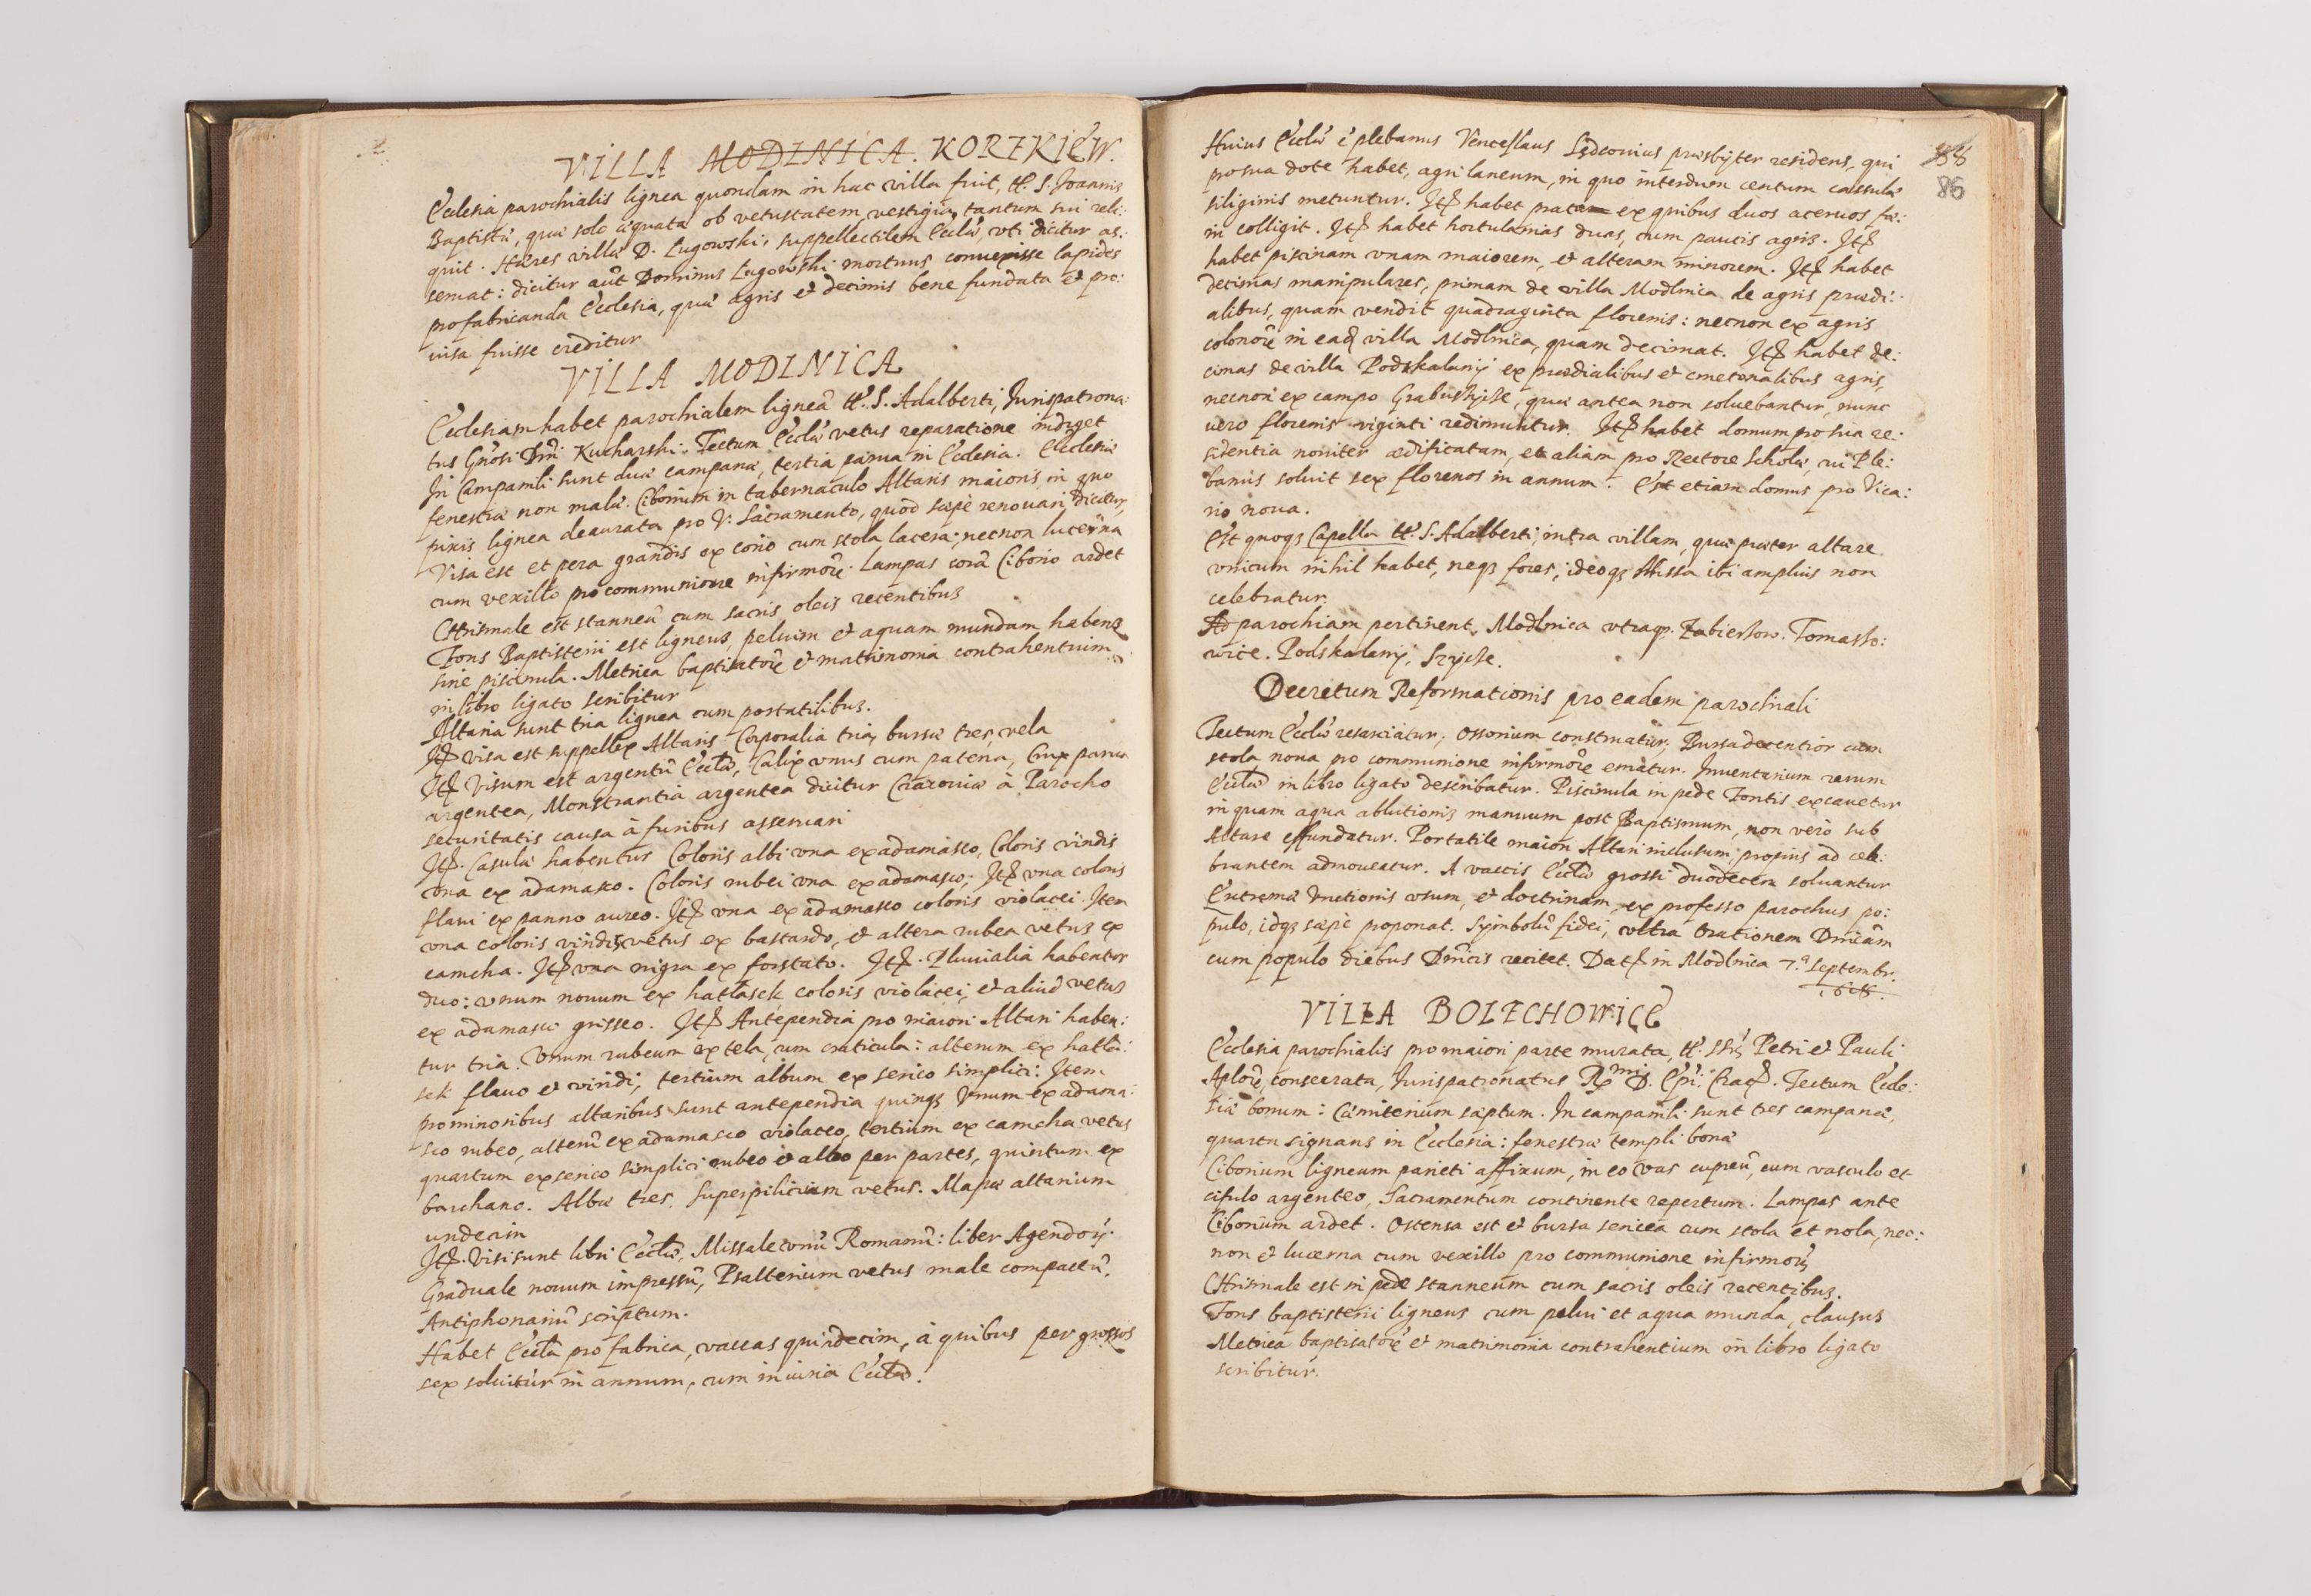 VILLA MODLNICA. KORZKIEW.
Ecclesia parochialis lignea quondam in hac villa fuit, tt. S. Joannis
Baptistæ, quæ solo æquata ob vetustatem vestigia tantum sui reli:
quit. Hæres villæ D. Ługowski, suppellectilem Eccłæ, vti dicitur as:
seruat: dicitur aut̃ Dominus Ługowski mortuus conuexisse lapides
pro fabricanda Ecclesia, quæ agris et decimis bene fundata et pro:
uisa fuisse creditur
VILLA MODLNICA
Ecclesiam habet parochialem ligneã tt. S. Adalberti, Jurispatrona:
tus Gñosi Dñi Kucharski. Tectum Eccłæ vetus reparatione indiget
In Campanili sunt duæ campanæ, tertia parua in Ecclesia. Ecclesiæ
fenestræ non malæ. Ciborium in tabernaculo Altaris maioris, in quo
pixis lignea deaurata pro V. Sacramento, quod sæpè renouari dicitur,
Visa est et pera grandis ex corio cum stola lacera; necnon lucerna
cum vexillo pro communione infirmorũ. Lampas corã Ciborio ardet
Chrismale est stanneũ cum sacris oleis recentibus
Fons Baptisterii est ligneus, peluim et aquam mundam habens
sine piscinula. Metrica baptisatorũ et matrimonia contrahentium
in libro ligato scribitur
Altaria sunt tria lignea cum portatilibus.
Itẽ visa est suppellex Altaris Corporalia tria, bursæ tres, vela
Itẽ Visum est argentũ Eccłæ, Calix vnus cum patena, Crux parua
argentea, Monstrantia argentea dicitur Cracouiæ à Parocho
securitatis causa à furibus asseruari
Itẽ. Casulæ habentur Coloris albi vna ex adamasco, Coloris viridis
vna ex adamasco. Coloris rubei vna ex adamasco; Itẽ vna coloris
flaui ex panno aureo. Itẽ vna ex adamasco coloris violacei. Item
vna coloris viridis vetus ex bastardo, et altera rubea vetus ex
camcha. Itẽ vna nigra ex forstato. Itẽ. Pluuialia habentur
duo: vnum nouum ex hatłasek coloris violacei, et aliud vetus
ex adamasco grisseo. Itẽ Antependia pro maiori Altari haben:
tur tria. Vnum rubeum ex tela, cum craticula: alterum ex hatła:
sek flauo et viridi, tertium album ex serico simplici: Item
pro minoribus altaribus sunt antependia quinqȝ Vnum ex adama:
sco rubeo, alterũ ex adamasco violaceo, tertium ex camcha vetus
quartum ex serico simplici rubeo et albo per partes, quintum ex
barchano. Albæ tres. Superpilicium vetus. Mapæ altarium
undecim
Itẽ. Visi sunt libri Eccłæ, Missale vnũ Romanũ: liber Agendorũ.
Graduale nouum impressũ, Psalterium vetus male compactũ,
Antiphonariũ scriptum.
Habet Eccła pro fabrica, vaccas quindecim, à quibus per grossos
sex soluitur in annum, cum iniuria Eccłæ.
Huius Eccłæ ẽ plebanus Venceslaus presbyter residens, qui
pro sua dote habet, agri laneum, in quo interdum centum cassulæ
siliginis metuntur. Itẽ habet prata ex quibus duos aceruos fæ:
ni colligit. Itẽ habet hortulanias duas, cum paucis agris. Itẽ
habet piscinam vnam maiorem, et alteram minorem. Itẽ habet
decimas manipulares, primam de villa Modlnica de agris prædi:
alibus, quam vendit quadraginta florenis: necnon ex agris
colonorũ in eadẽ villa Modlnica, quam decimat. Itẽ habet de:
cimas de villa Podskalany ex prædialibus et cmetonalibus agris,
necnon ex campo quæ antea non soluebantur, nunc
uero florenis viginti redimuntur. Itẽ habet domum pro sua re:
sidentia nouiter ædificatam, et aliam pro Rectore Scholæ, cui Ple:
banus soluit sex florenos in annum. Est etiam domus pro Vica:
rio noua.
Est quoqȝ Capella tt. S. Adalberti, intra villam, quæ præter altare
vnicum nihil habet, neqȝ fores, ideoqȝ Missa ibi amplius non
celebratur.
Ad parochiam pertinent. Modlnica vtraqȝ. Zabierżow. Tomasso:
wice. Podskalany, Szycze.
Decretum Reformationis pro eadem parochiali
Tectum Eccłæ resarciatur, Ossorium construatur; Bursa decentior cum
stola noua pro communione infirmorũ ematur. Inuentarium rerum
Eccłæ in libro ligato describatur. Piscinula in pede Fontis excauetur
in quam aqua ablutionis manuum post Baptismum, non verò sub
Altare effundatur. Portatile maiori Altari inclusum, propius ad cele:
brantem admoueatur. A vaccis Eccłæ grossi duodecim soluantur
Extremæ Vnctionis vsum, et doctrinam, ex professo parochus po:
pulo, idqȝ sæpè proponat. Symbolũ fidei, vltra Orationem Dñicãm
cum populo diebus Dñicis recitet. Datẽ in Modlnica 7.ª Septembr.
VILLA BOLECHOWICE
Ecclesia parochialis pro maiori parte murata, tt. SSrũ Petri et Pauli
Aplorũ, consecrata, Jurispatronatus Rẽmi D. Epĩ. Cracẽ. Tectum Eccle:
siæ bonum: Cæmiterium sæptum. In campanili sunt tres campanæ,
quarta signans in Ecclesia: fenestræ templi bonæ
Ciborium ligneum parieti affixum, in eo vas cupreũ, cum vasculo et
cifulo argenteo, Sacramentum continente repertum. Lampas ante
Ciborium ardet. Ostensa est et bursa sericea cum stola et nola, nec:
non et lucerna cum vexillo pro communione infirmorũ
Chrismale est in pede stanneum cum sacris oleis recentibus.
Fons baptisterii ligneus cum pelui et aqua munda, clausus
Metrica baptisatorũ et matrimonia contrahentium in libro ligato
scribitur.
86